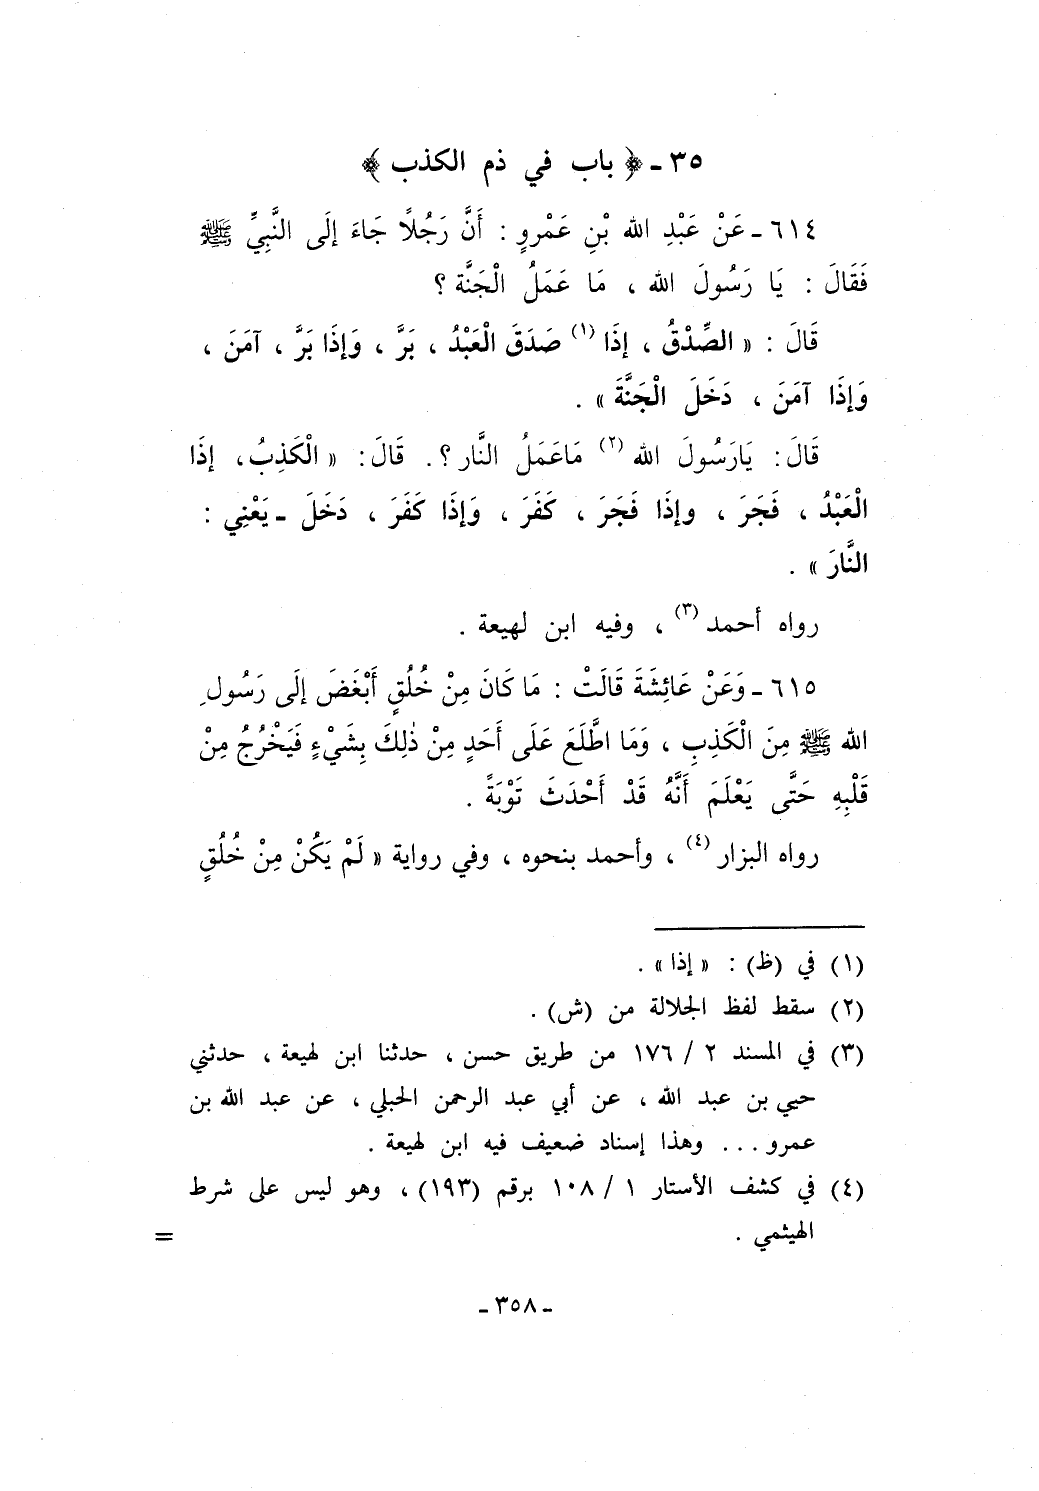 ٣٥ ـ ﴿ باب في ذم الكذب ﴾
٦١٤ ـ عَنْ عَبْدِ الله بْنِ عَمْرٍو : أَنَّ رَجُلاً جَاءَ إلَى النَّبِيِّ ﷺ
فَقَالَ : يَا رَسُولَ الله ، مَا عَمَلُ الْجَنَّة ؟
قَالَ : « الصِّدْقُ ، إذَا (١) صَدَقَ الْعَبْدُ ، بَرَّ ، وَإذَا بَرَّ ، آمَنَ ،
وَإذَا آمَنَ ، دَخَلَ الْجَنَّةَ » .
قَالَ : يَارَسُولَ الله (٢) مَاعَمَلُ النَّار ؟ . قَالَ : « الْكَذِبُ ، إذَا
الْعَبْدُ ، فَجَرَ ، وإذَا فَجَرَ ، كَفَرَ ، وَإذَا كَفَرَ ، دَخَلَ ـ يَعْنِي :
النَّارَ » .
رواه أحمد (٣) ، وفيه ابن لهيعة .
٦١٥ ـ وَعَنْ عَائِشَةَ قَالَتْ : مَا كَانَ مِنْ خُلُقٍ أَبْغَضَ إلَى رَسُولِ
الله ﷺ مِنَ الْكَذِبِ ، وَمَا اطَّلَعَ عَلَى أَحَدٍ مِنْ ذٰلِكَ بِشَيْءٍ فَيَخْرُجُ مِنْ
قَلْبِهِ حَتَّى يَعْلَمَ أَنَّهُ قَدْ أَحْدَثَ تَوْبَةً .
رواه البزار (٤) ، وأحمد بنحوه ، وفي رواية « لَمْ يَكُنْ مِنْ خُلُقٍ
(١) في (ظ) : « إذا » .
(٢) سقط لفظ الجلالة من (ش) .
(٣) في المسند ٢ / ١٧٦ من طريق حسن ، حدثنا ابن لهيعة ، حدثني
حيي بن عبد الله ، عن أبي عبد الرحمن الحبلي ، عن عبد الله بن
عمرو . . . وهذا إسناد ضعيف فيه ابن لهيعة .
(٤) في كشف الأستار ١ / ١٠٨ برقم (١٩٣) ، وهو ليس على شرط
الهيثمي . =
ـ ٣٥٨ ـ